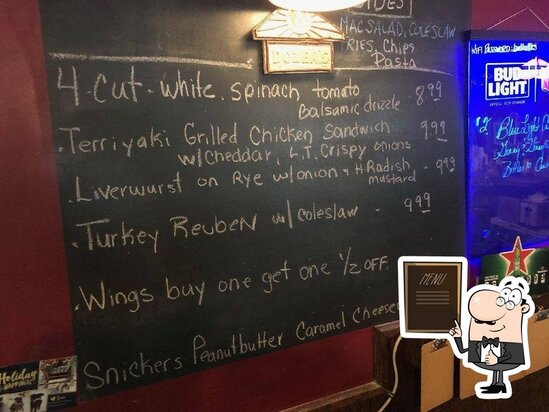 SIDES!
MACSALAD, COLESLAW
FRIES, Chips
Pasta
4-Cut - white. spinach tomato
balsamic drizzle 8.99
Terriyaki Grilled Chicken Sandwich
w/cheddar, L.T. Crispy onions 9.99
Liverwurst on Rye w/onion & H.Radish
mustard - 9.99
Turkey Reuben w/coleslaw - 9.99
Wings buy one get one 1/2 OFF.
Snickers Peanutbutter Caramel Cheese
WiFi PASSWORD:
BUD
LIGHT
$2
Blue Light
the
Holiday
HAPPINESS
MENU